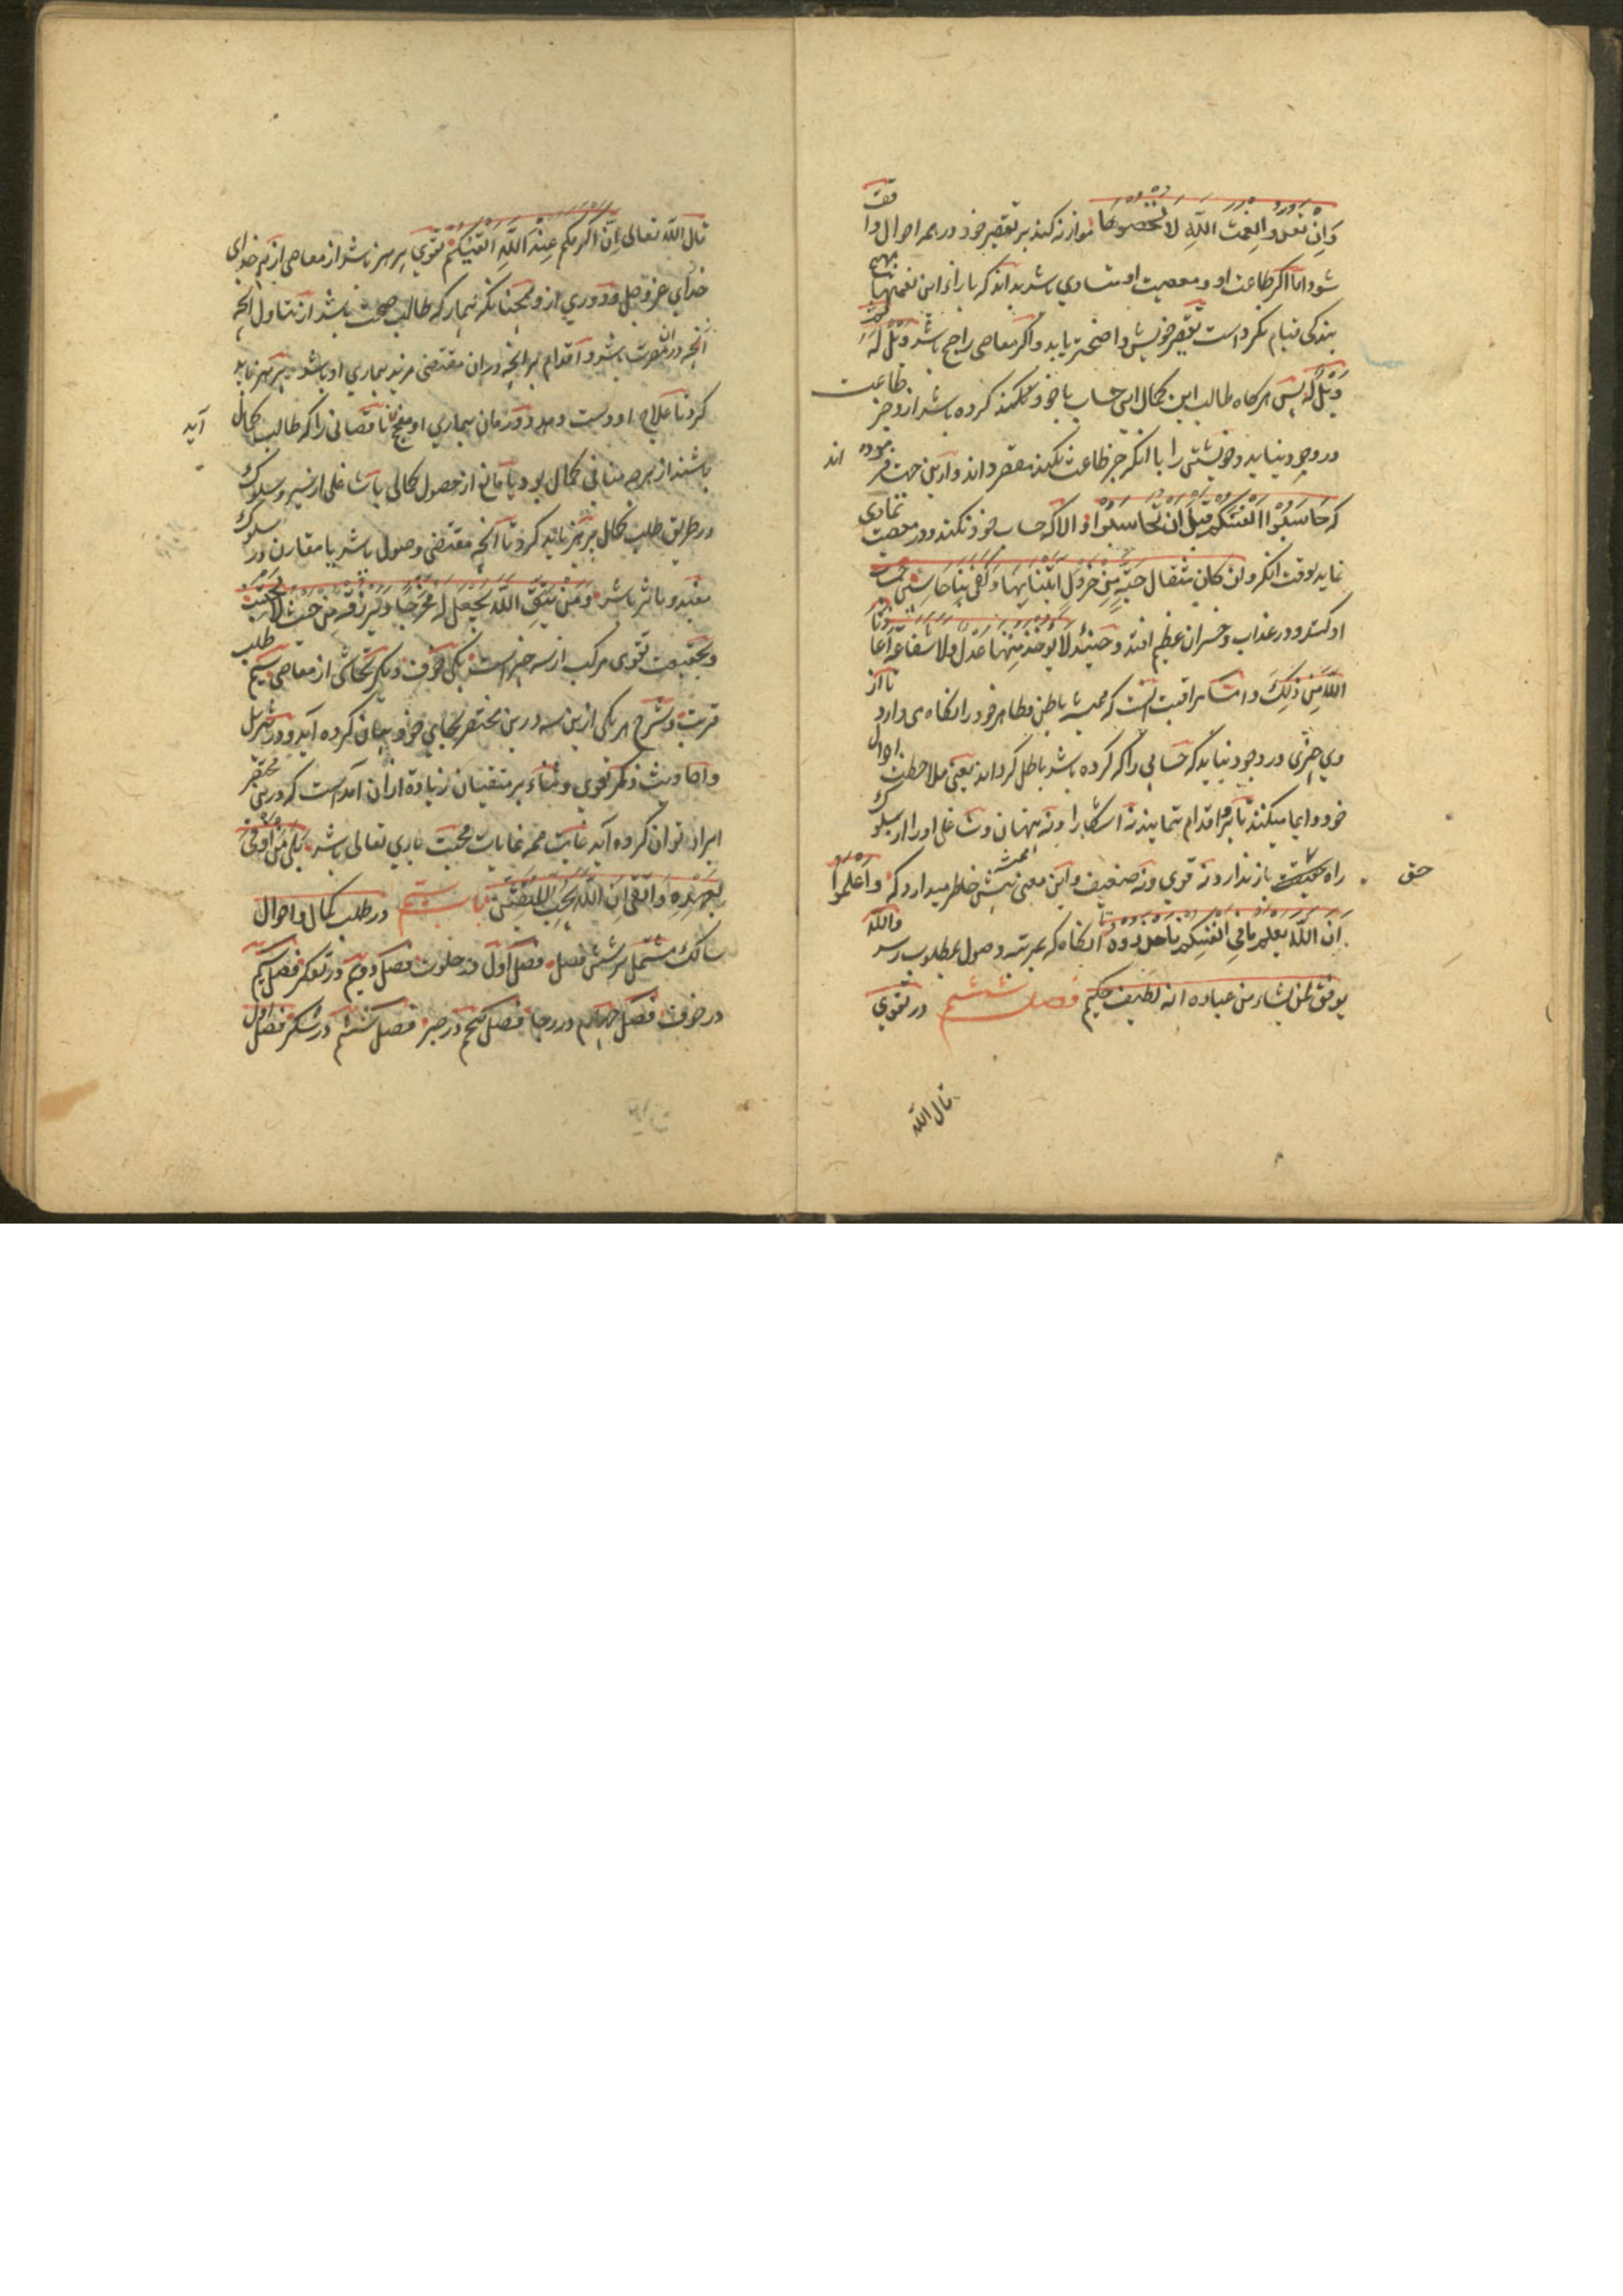 وَاِنْ تَعُدُّوا نِعْمَتَ اللهِ لَا تُحْصُوهَا موازنه کند بر تقصیر خود در همه احوال واقف
شود اما اگر طاعت او و معصیت او متساوی باشد بداند که بازاء این نعمتها هیچ
بندگی قیام نکرده است تقصیر خویش واضحتر یابد و اگر معاصی راجح باشد فَوَيْلٌ لَهُ ثم
وَيْلٌ لَهُ پس هرگاه طالب این کمال این حساب با خود نکند کرده باشد ازو جز طاعت
در وجود نیاید و خویشتن را با آنکه جز طاعت نکند مقصر داند و ازین جهت فرموده اند
که حَاسِبُوا اَنْفُسَكُمْ قَبْلَ اَنْ تُحَاسَبُوا و الا که حساب خود نکند و در معصیت تمادی
نماید بوقت آنکه وان كان مثقال حَبَّةٍ مِنْ خَرْدَلٍ اَتَيْنَا بِهَا وَكَفَى بِنَا حَاسِبِينَ حساب
او کنند و در عذاب و خسران عظیم افتد و حینئذ لا يؤخذ مِنْهَا عَدْل ولا شفاعة اَعَاذَنَا
اللهُ مِنْ ذٰلِكَ و اما مراقبت آنست که همیشه باطن و ظاهر خود را نگاه می دارد تا از
وی چیزی در وجود نیاید که حسابی را که کرده باشد باطل گرداند یعنی ملاحظت احوال
خود دایما میکند تا بر اقدام ننماید نه آشکارا و نه پنهان و شاغلی او را از سلوک
راه حق باز ندارد نه قوی و نه ضعیف و این معنی همیشه پیش خاطر میدارد که وَاعْلَمُوا
اَنَّ اللهَ يَعْلَمُ مَا فِي اَنْفُسِكُمْ فَاحْذَرُوهُ تا آنگاه که بمرتبه وصول بمطلوب رسد والله
يوفق لمن يشاء من عباده انه لطيف حكيم فصل ششم در تقوی
قال الله
قال الله تعالی اِنَّ اَكْرَمَكُمْ عِنْدَ اللهِ اَتْقٰيكُمْ تقوی پرهیز باشد از معاصی از بیم خدای
خدای عز وجل و دوری ازو همچنانکه بیمار که طالب صحت باشد از تناول آنچه
آنچه در ان مضرت باشد و اقدام بر آنچه در ان مقتضی مزید بیماری او باشد پرهیز باید
کرد تا علاج او دست دهد و درمان بیماری او منجح آید ناقصانی را که طالب کمال
باشند از هرچه منافی کمال بود یا مانع از حصول کمالی یا شاغلی از سیر و سلوک
در طریق طلب کمال پرهیز باید کرد تا آنچه مقتضی وصول باشد یا مقارن در سلوک
مفید و مؤثر باشد وَمَنْ يَتَّقِ اللهَ يَجْعَلْ لَهُ مَخْرَجًا وَيَرْزُقْهُ مِنْ حَيْثُ لَا يَحْتَسِبُ
و بحقیقت تقوی مرکب از سه چیز است یکی خوف و دیگر تحاشی از معاصی سیم طلب
قربت و شرح هر یکی ازین سه درین مختصر بجای خود بیان کرده آید و در تنزیل
و احادیث ذکر تقوی و ثناء بر متقیان زیاده از ان آمده است که درین مختصر
ایراد توان کرد و آید غایت همه غایات محبت باری تعالی باشد بَلٰى مَنْ اَوْفٰى
بِعَهْدِهِ وَاتَّقٰى فَاِنَّ اللهَ يُحِبُّ الْمُتَّقِينَ باب سیم در طلب کمال و احوال
سالک مشتمل بر شش فصل فصل اول در خلوت فصل دویم در تفکر فصل سیم
در خوف فصل چهارم در رجا فصل پنجم در صبر فصل ششم در شکر فصل اول